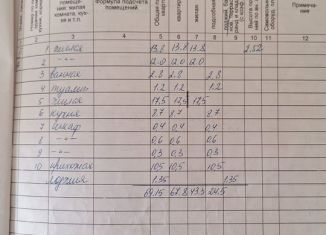 помеще-
ния: жилая
комната, кух-
ня и т.п.
Формула подсчета
помещений
жилая
Примеча-
ния
3 4 5 6 7 8 9 10 11 12
1 жилая 13.8 13.8 13.8 2.52
2 -"- 12.0 12.0 12.0
3 ванная 2.8 2.8 2.8
4 туалет 1.2 1.2 1.2
5 жилая 17,5 17,5 17,5
6 кухня 8.7 8.7 8.7
7 шкаф 0,4 0,4 0.4
8 -"- 0.6 0.6 0.6
9 -"- 0,3 0.3 0.3
10 прихожая 10,5 10,5 10,5
лоджия 1.35 1.35
69.15 67.8 43.3 24.5